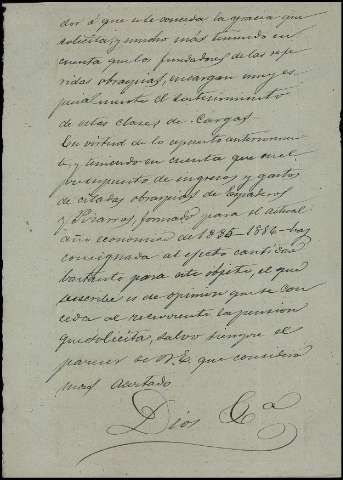 dor á que se le conceda la gracia que
solicita, y mucho más teniendo en
cuenta que los fundadores de las refe
ridas obrapias, encargan muy es
pecialmente el sostenimiento
de estas clases de cargas
En virtud de lo expuesto anteriormen
te, y teniendo en cuenta que en el
presupuesto de ingresos y gastos
de citadas obrapias de
y Pizarros, formado para el actual
año economico de 1885-1886 hay
consignada al efecto cantidad
bastante para este objeto, el que
suscribe es de opinion que se con
ceda al recurrente la pension
que solicita, salvo siempre el
parecer de V.E. que considera
mas acertado
Dios &a